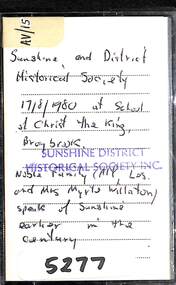 AV/15
Sunshine and District
Historical Society
17/8/1980 at School
of Christ the King,
Braybrook.
SUNSHINE DISTRICT
HISTORICAL SOCIETY INC.
Noble Family (Mr Les.
and Mrs Myrtle Willaton)
speak of Sunshine
earlier in the
century
5277